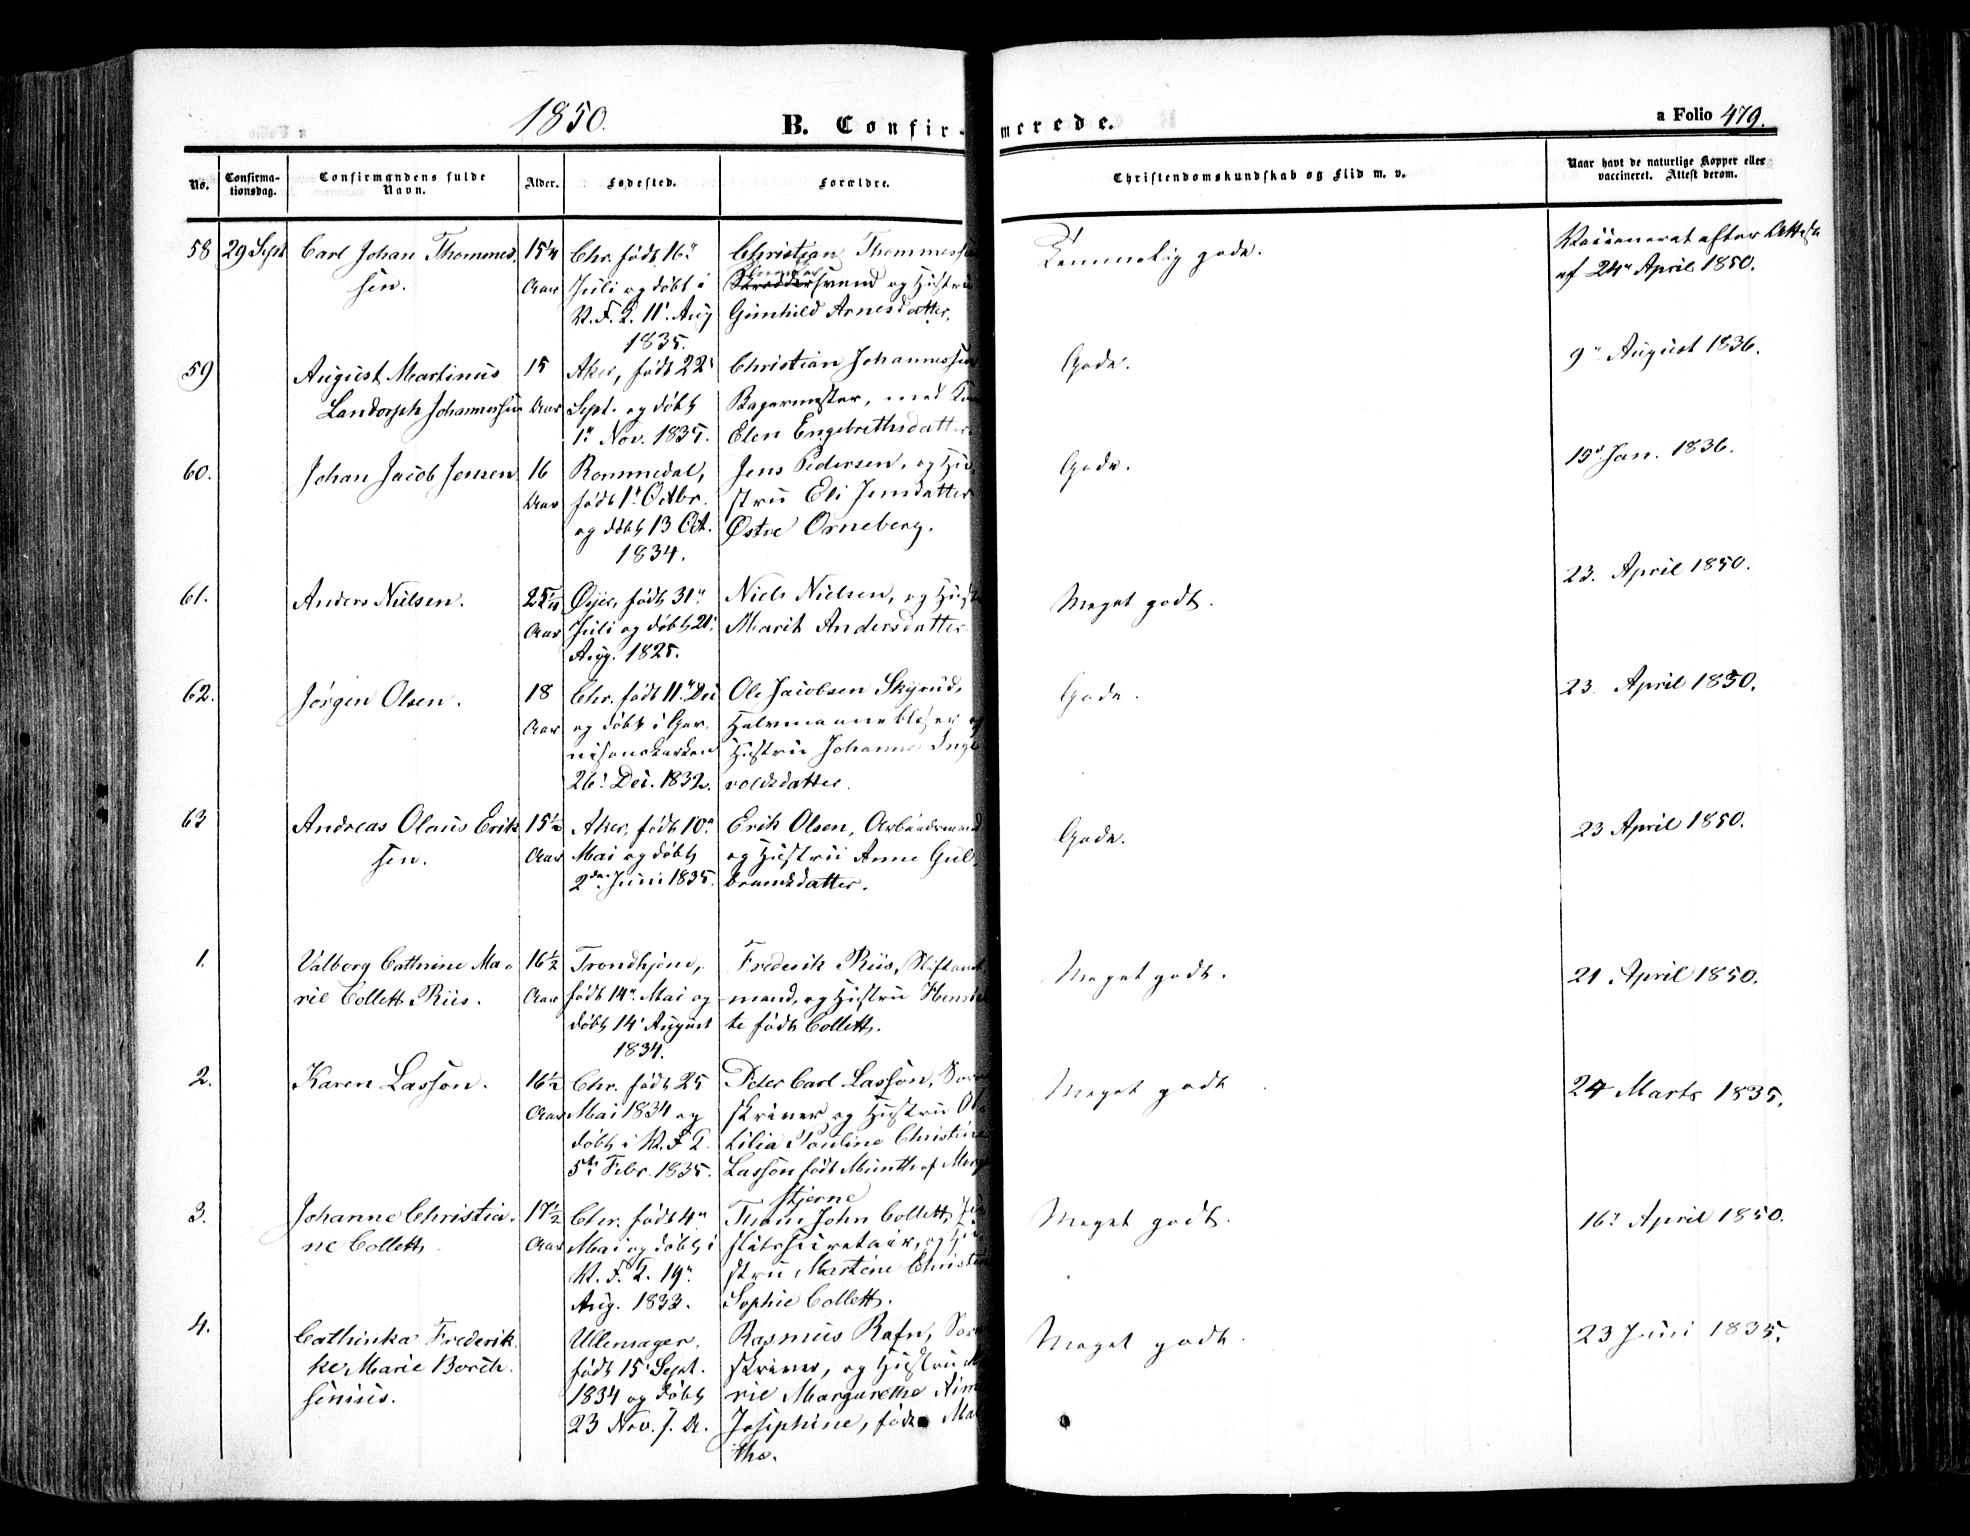 1850.
B. Confirmerede.
a Folio 479.
No.
Confirma-
tionsdag.
Confirmandens fulde
Navn.
Alder.
Fødested.
Forældre.
Christendomskundskab og Flid m. v.
Naar havt de naturlige Kopper eller
vaccineret. Attest derom.
58 29 Sept Carl Johan Thommes, 15¼ Chr. født 16de Christian Thommessen
sen. Aar Juli og døbt i svend og Hustru
V. F. K. 11' Aug Gunhild Arnesdatter.
1835.
Temmelig gode.
Vaccineret efter Attest
af 24de April 1850.
59 August Martinus 15 Aker, født 22' Christian Johannessen
Landorph Johannessen Aar Sept. og døbt Bagermester, med
1' Nov. 1835. Elen Engebrethsdatter
Gode.
9' August 1836.
60. Johan Jacob Jensen 16 Rommedal, Jens Pedersen, og Hu-
Aar født 1' Octbr. stru Eli Jensdatter
og døbt 13 Oct. Østre Orneberg.
1834.
Gode.
15' Jan. 1836.
61. Anders Nielsen. 25¼ Øyer, født 31' Niels Nielsen, og Hust
Aar Juli og døbt 21' Marit Andersdatter
Aug. 1825.
Meget godt.
23. April 1850.
62. Jørgen Olsen. 18 Chr. født 11' Dec Ole Jacobsen Skyrud,
Aar og døbt i Gar- Halvmaaneblæser og
nisonskirken Hustru Johanne Inge
26' Dec. 1832. voldsdatter.
Gode.
23. April 1850.
63 Andreas Olaus Erik 15½ Aker, født 10' Erik Olsen, Arbeidsmand
sen. Aar Mai og døbt og Hustru Anne Gul-
2den Juni 1835. brandsdatter.
Gode.
23 April 1850.
1. Valborg Cathrine Ma- 16½ Trondhjem, Frederik Riis, Stiftamt
rie Collett Riis. Aar født 14' Mai og mand, og Hustru Henriet
døbt 14' August te født Collett.
1834.
Meget godt.
21. April 1850.
2. Karen Lasson. 16½ Chr. født 25 Peter Carl Lasson, Soren
Aar Mai 1834 og skriver og Hustru Ot
døbt i V. F. K. tilia Pauline Christine
5te Febr. 1835. Lasson født Munthe af Morgen
stjerne
Meget godt
24 Marts 1835.
3. Johanne Christia- 17½ Chr. født 4' Thom John Collett, Ju
ne Collett. Aar Mai og døbt i stitssecretair, og Hu-
V. F. K. 19' stru Martine Christine
Aug. 1833. Sophie Collett.
Meget godt.
16' April 1850.
4. Cathinka Frederik- Ullensager, Rasmus Rafn, Soren
ke Marie Borch født 15' Sept. skriver, og Hustru Ma
senius. 1834 og døbt rie Margarethe
23 Nov. s. A. Josephine, født Mal
the.
Meget godt.
23 Juni 1835.